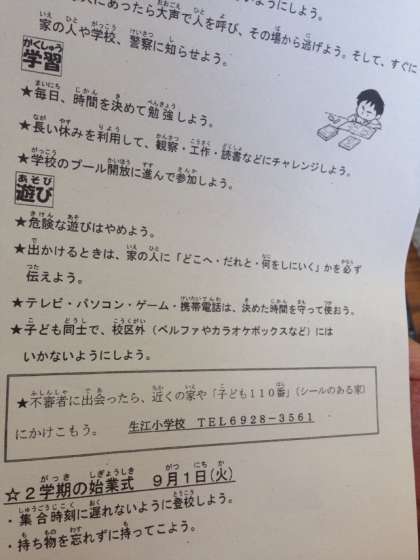 にあったら大声で人を呼び、その場から逃げよう。そして、すぐに
家の人や学校、警察に知らせよう。
学習
★毎日、時間を決めて勉強しよう。
★長い休みを利用して、観察・工作・読書などにチャレンジしよう。
★学校のプール開放に進んで参加しよう。
遊び
★危険な遊びはやめよう。
★出かけるときは、家の人に「どこへ・だれと・何をしにいく」かを必ず
伝えよう。
★テレビ・パソコン・ゲーム・携帯電話は、決めた時間を守って使おう。
★子ども同士で、校区外（ベルファやカラオケボックスなど）には
いかないようにしよう。
★不審者に出会ったら、近くの家や「子ども１１０番」（シールのある家）
にかけこもう。　生江小学校　ＴＥＬ６９２８－３５６１
☆２学期の始業式　９月１日（火）
・集合時刻に遅れないように登校しよう。
・持ち物を忘れずに持ってこよう。